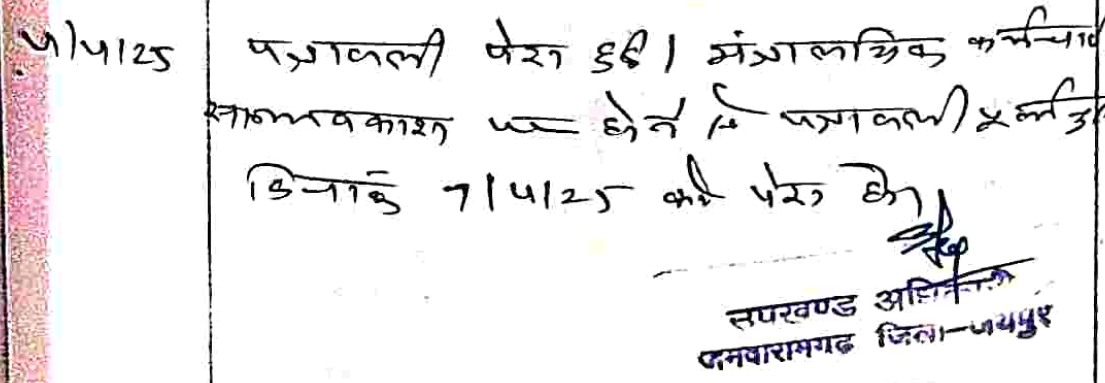 4/4/25 पत्रावली पेश हुई। मंत्रालयिक कर्मचारी
सामूहिक अवकाश पर होने से पत्रावली पूर्व
दिनांक 7/4/25 को पेश हो।
उपखण्ड अधिकारी
जमवारामगढ जिला-जयपुर